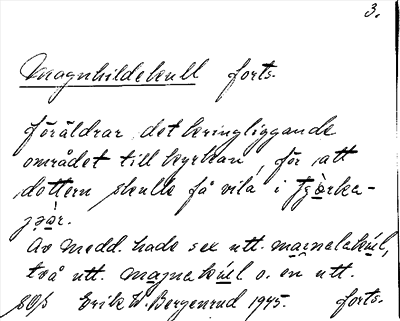 3.
Magnhildekull forts.
föräldrar det kringliggande
området till kyrkan, för att
dottern skulle få vila i tjörka-
jọàr.
Av medd. hade sex utt. mạenelekúl,
två utt. magnekúl o. en utt.
SOÅ Erik W. Bergenrud 1945. forts.